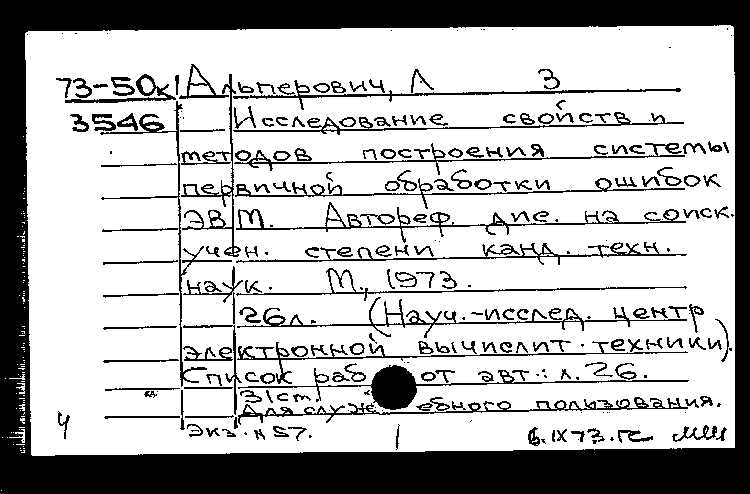 73-50к Альперович, Л З
3546 Исследование свойств и
методов построения системы
первичной обработки ошибок
ЭВМ. Автореф. дис. на соиск.
учен. степени канд. техн.
наук. М., 1973.
26л. (Науч.-исслед. центр
электронной вычислит. техники).
Список раб от авт.: л. 26.
31ст.
Для служебного пользования.
Ч экз. N 57. 6.IX73.